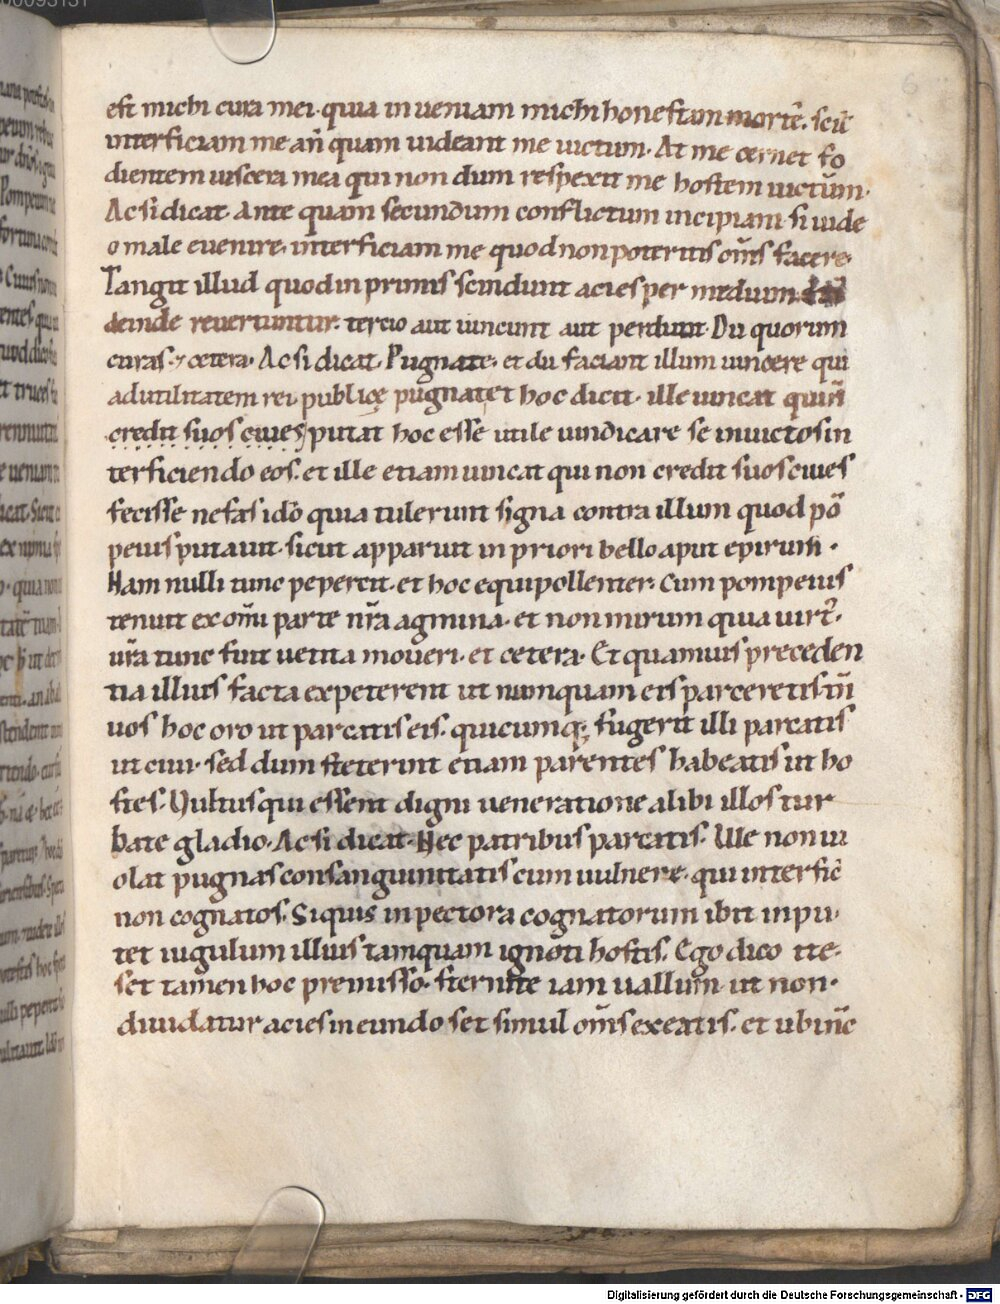 est michi cura mei. quia in ueniam michi honestam mortē. scił
interficiam me añ quam uideant me uictum. At me cernet fo
dientem uiscera mea qui non dum respexit me hostem uictum.
Ac si dicat. Ante quam secundum conflictum incipiam. si uide
o male euenire. interficiam me quod non poteritis om̄s facere.
Tangit illud quod in primis scindunt acies per medium.
deinde reuertuntur. tercio aut uincunt aut perdunt. Du quorum
curas. ⁊ cetera. Ac si dicat. Pugnate. et du faciant illum uincere qui
ad utilitatem rei publicę pugnat et hoc dicit. ille uincat qui n̄
credit suos ciues putat hoc esse utile uindicare se in uictos in
terficiendo eos. et ille etiam uincat qui non credit suos ciues
fecisse nefas idō quia tulerunt signa contra illum quod pō
peius putauit. sicut apparuit in priori bello aput epirum.
Nam nulli tunc pepercit. et hoc equipollenter. Cum pompeius
tenuit ex om̄i parte nr̄a agmina. et non mirum quia uirt᷒.
ur̄a tunc fuit uetita moueri. et cetera. Et quamuis preceden
tia illius facta expeterent ut numquam eis parceretis. tm̄
uos hoc oro ut parcatis eis. quicumq; fugerit illi parcatis
ut ciui. sed dum steterint etiam parentes habeatis ut ho
stes. Vultus qui essent digni ueneratione alibi illos tur
bate gladio. Ac si dicat. Nec patribus parcatis. Ille non ui
olat pugnas consanguinitatis cum uulnere. qui interfic̄
non cognatos. Si quis in pectora cognatorum ibit inpu.
tet iugulum illius tamquam ignoti hostis. Ego dico ite.
set tamen hoc premisso. sternite iam uallum. ut non.
diuidatur acies in eundo set simul om̄s exeatis. et ubi n̄c